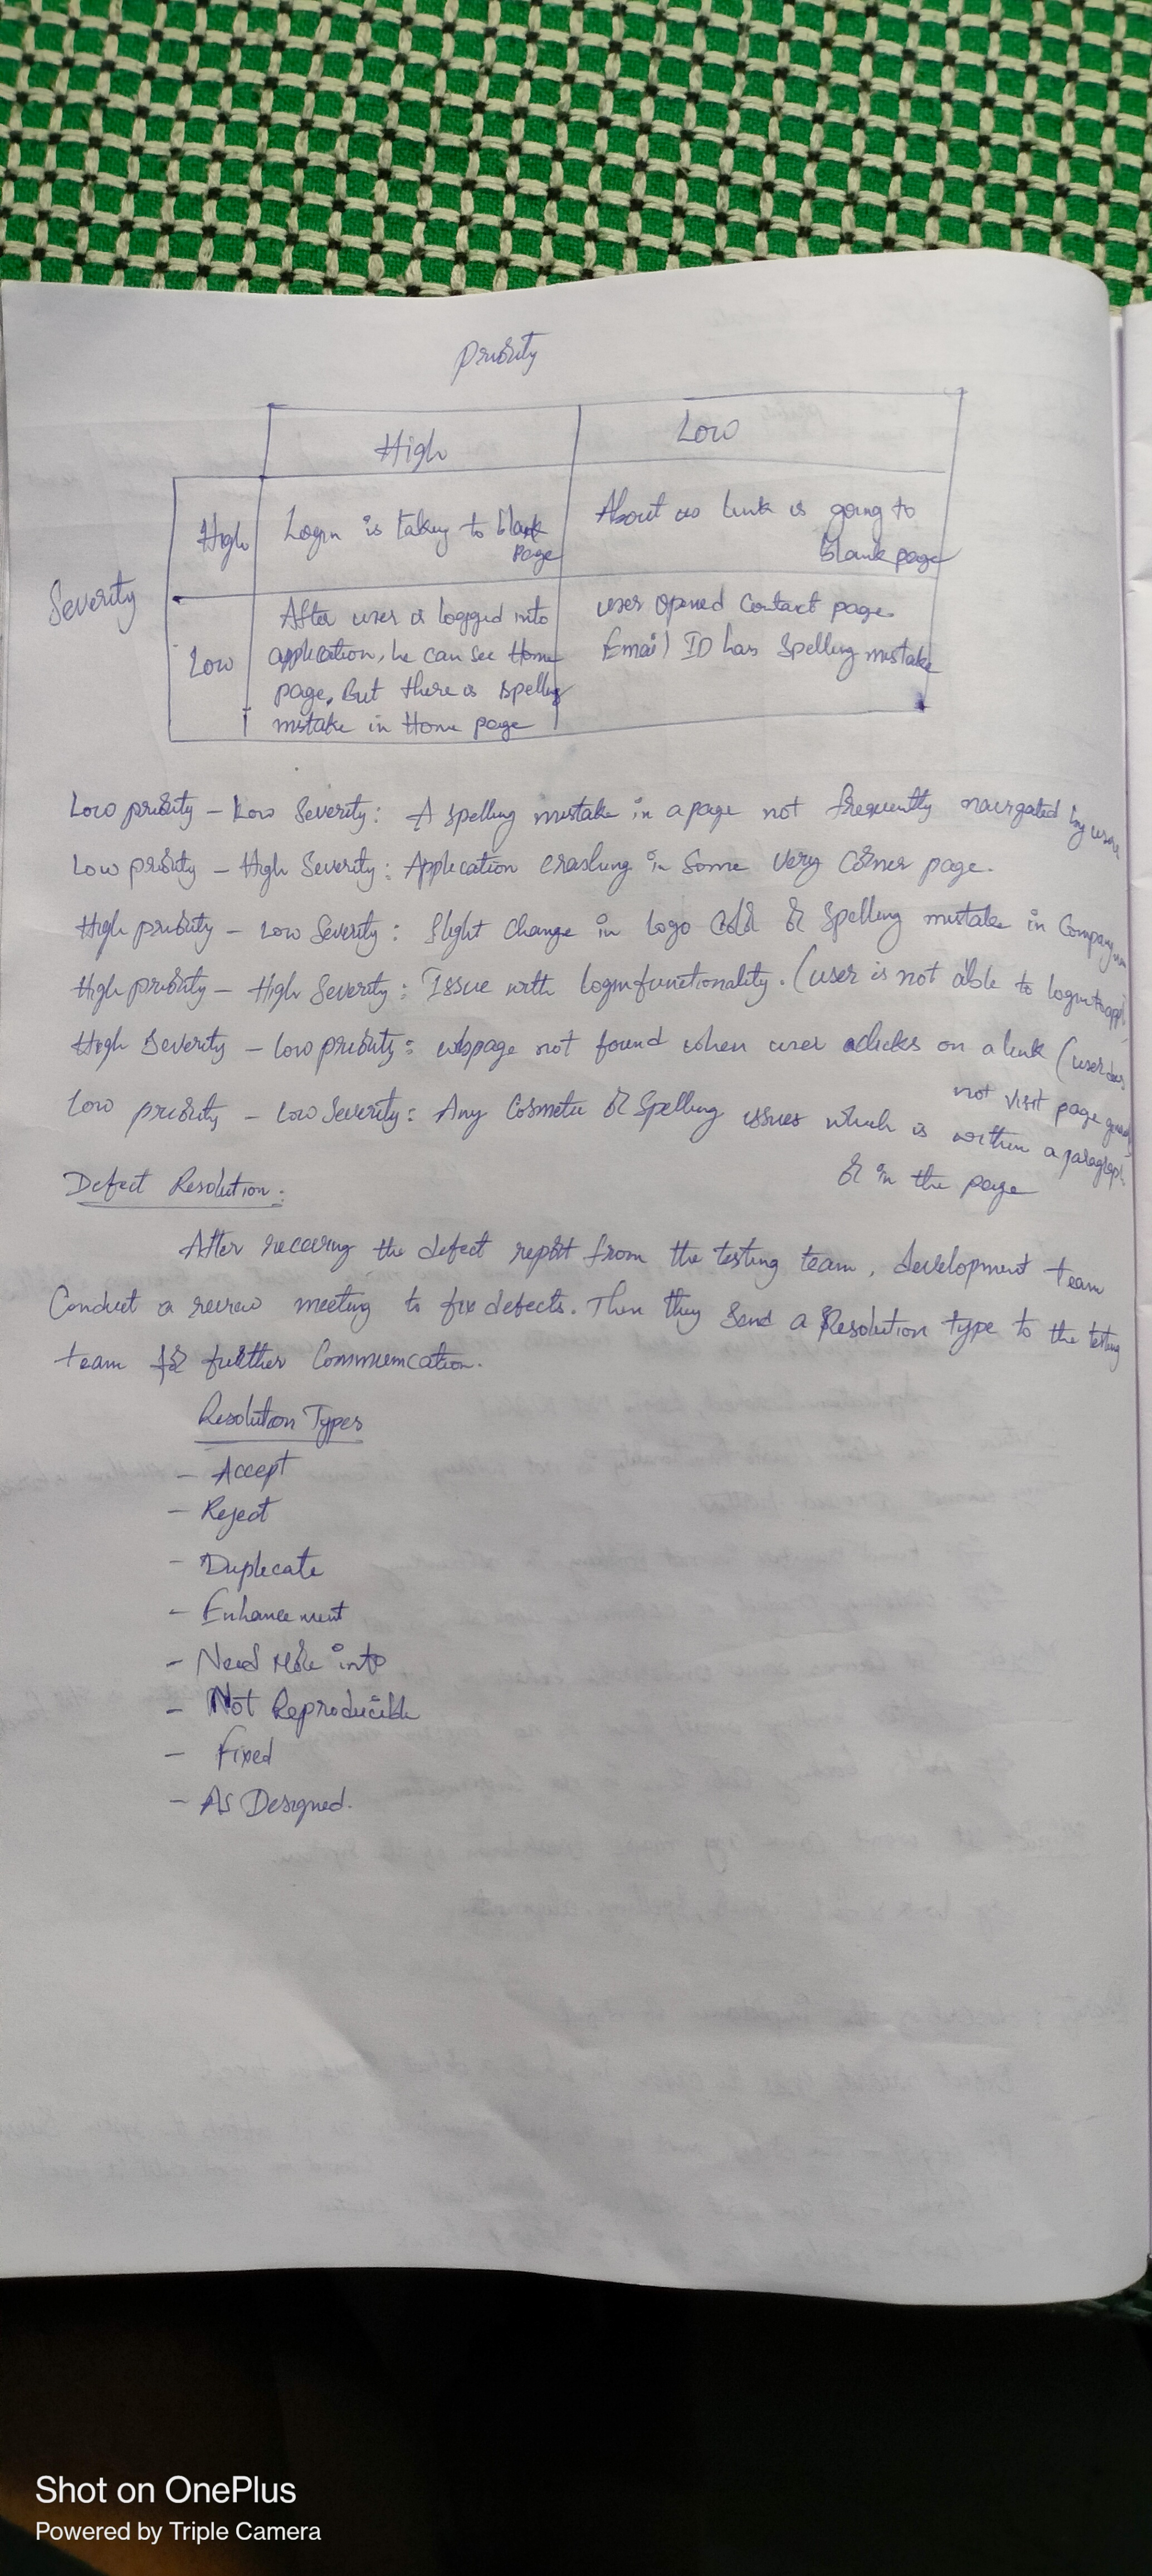 Priority
High Low
High Login is taking to blank page About us link is going to blank page
Severity
Low After user is logged into application, he can see Home page, But there is spelling mistake in Home page user opened Contact page Email ID has Spelling mistake
Low priority – Low Severity: A spelling mistake in a page not frequently navigated by users
Low priority – High Severity: Application crashing in Some Very Corner page.
High priority – Low Severity: Slight Change in logo Color or Spelling mistake in Company
High priority – High Severity: Issue with login functionality. (user is not able to login to appl
High Severity – Low priority: webpage not found when user clicks on a link (user does
not visit page
Low priority – Low Severity: Any Cosmetic or Spelling issues which is within a paragraph
or in the page
Defect Resolution:
After receiving the defect report from the testing team, development team
Conduct a review meeting to fix defects. Then they Send a Resolution type to the testing
team for further Communication.
Resolution Types
– Accept
– Reject
– Duplicate
– Enhancement
– Need More info
– Not Reproducible
– Fixed
– As Designed.
Shot on OnePlus
Powered by Triple Camera